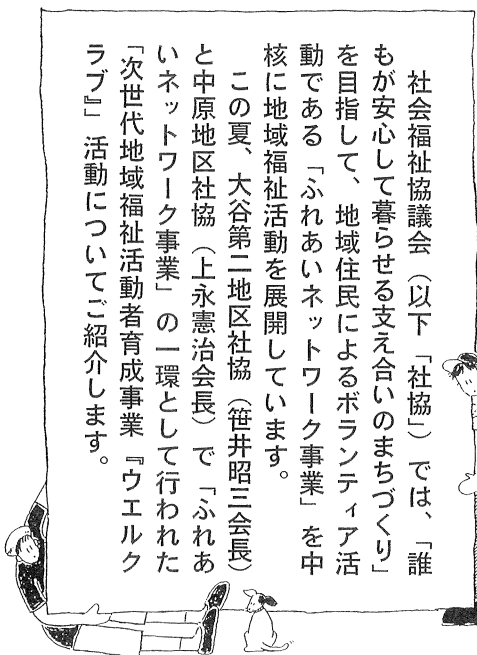 社会福祉協議会（以下「社協」）では、「誰
もが安心して暮らせる支え合いのまちづくり」
を目指して、地域住民によるボランティア活
動である「ふれあいネットワーク事業」を中
核に地域福祉活動を展開しています。
この夏、大谷第二地区社協（笹井昭三会長）
と中原地区社協（上永憲治会長）で「ふれあ
いネットワーク事業」の一環として行われた
「次世代地域福祉活動者育成事業『ウエルク
ラブ』」活動についてご紹介します。